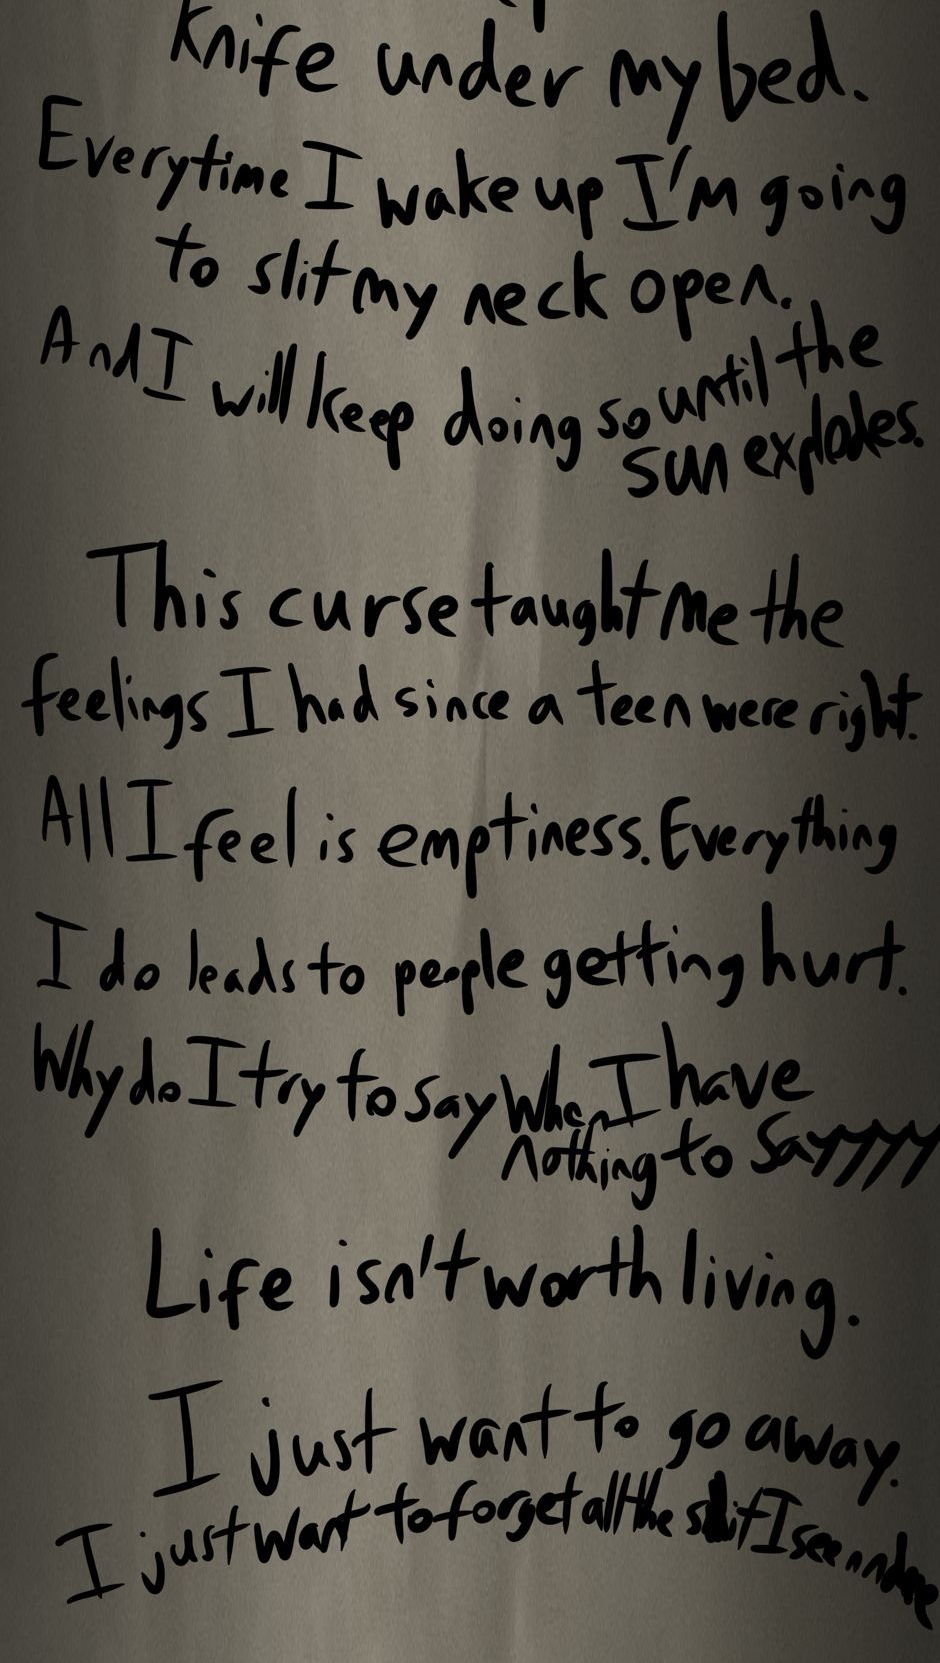 Knife under my bed.
Everytime I wake up I'm going
to slit my neck open.
And I will keep doing so until the
sun explodes.
This curse taught me the
feelings I had since a teen were right.
All I feel is emptiness. Everything
I do leads to people getting hurt.
Why do I try to say when I have
nothing to sayyyy
Life isn't worth living.
I just want to go away.
I just want to forget all the shit I